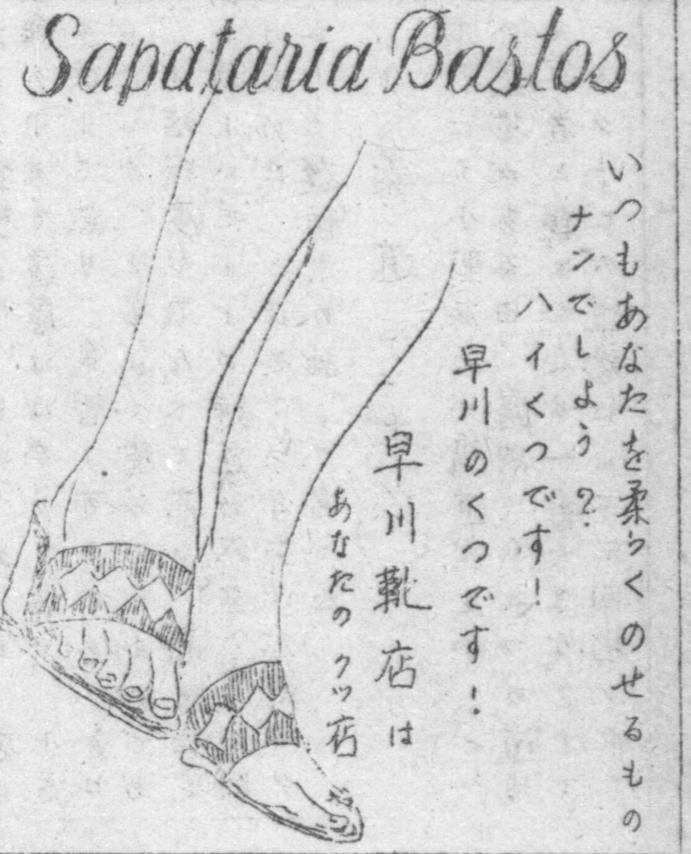 Sapataria Bastos
いつもあなたを柔らくのせるもの
ナンでしよう?
ハイくつです!
早川のくつです!
早川靴店は
あなたのクツ店